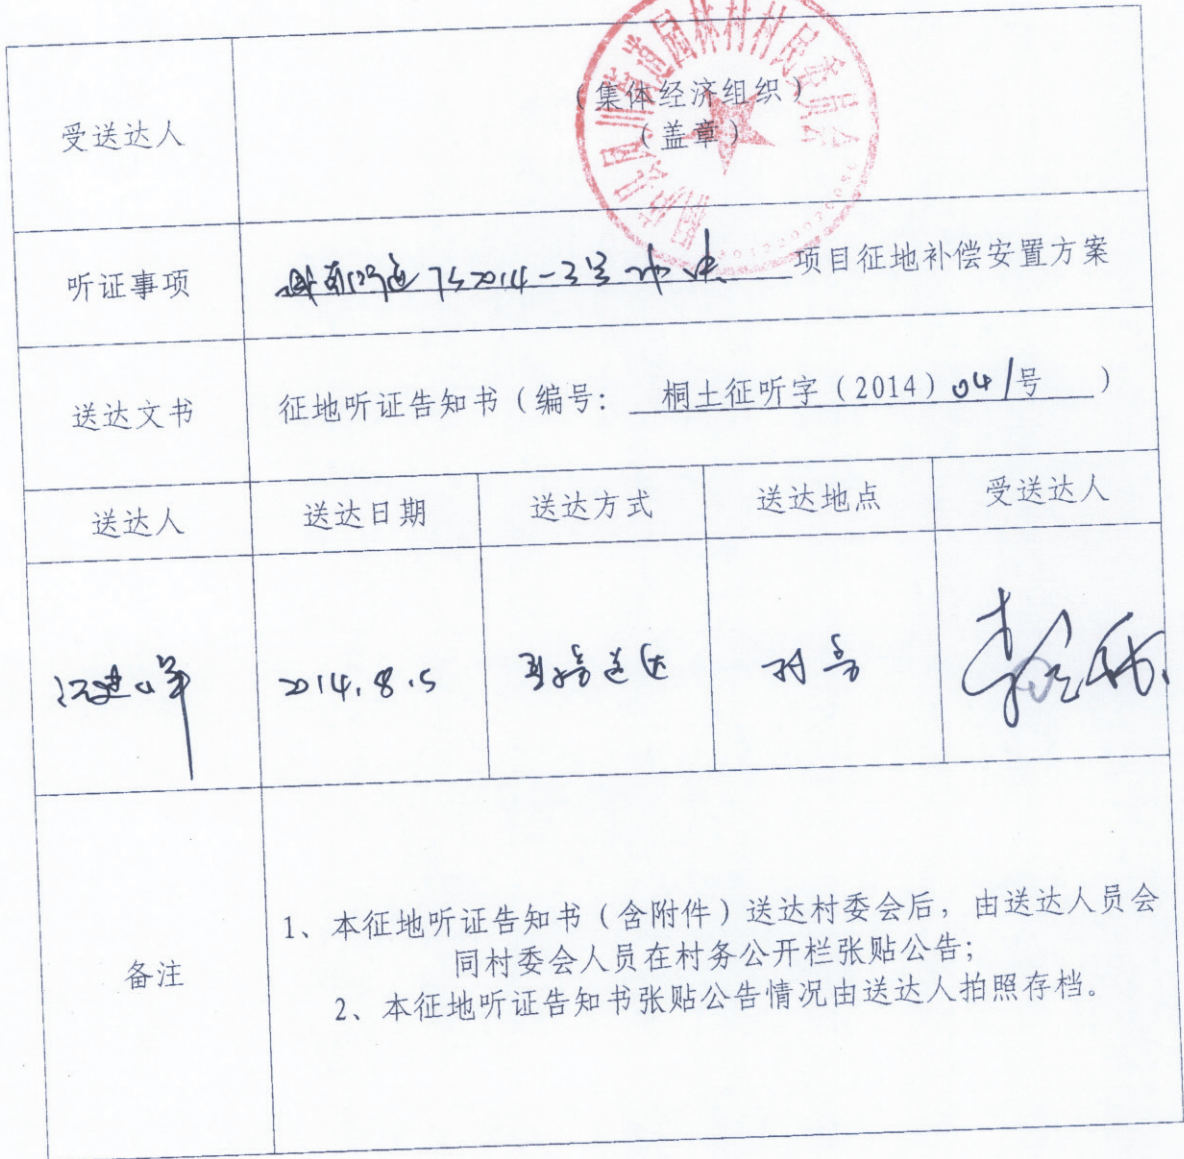 受送达人
（集体经济组织）
（盖章）
园林村村民委员会
听证事项
2014-3号 项目征地补偿安置方案
送达文书
征地听证告知书（编号：桐土征听字（2014）041号）
送达人 送达日期 送达方式 送达地点 受送达人
2014.8.5 送达 村务
备注
1、本征地听证告知书（含附件）送达村委会后，由送达人员会
同村委会人员在村务公开栏张贴公告；
2、本征地听证告知书张贴公告情况由送达人拍照存档。